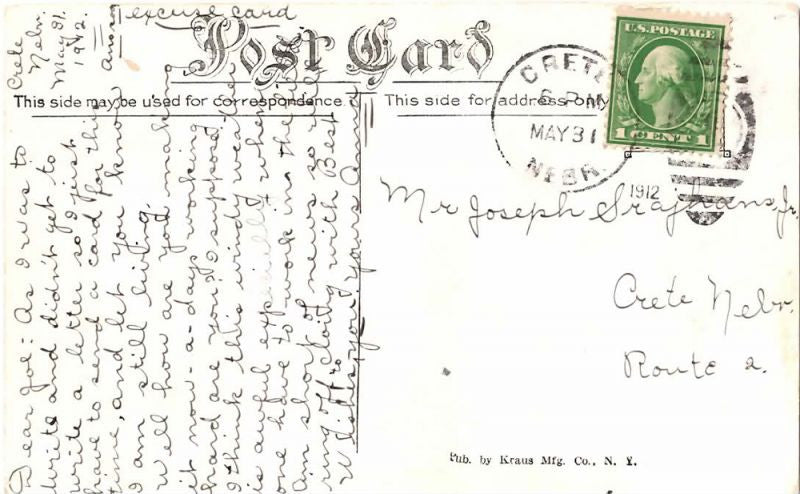 excuse card
Post Card
This side may be used for correspondence.
This side for address only
Crete
Nebr.
May 31.
1912.
Dear Joe:- As I was to
write and didn't get to
write a letter so I just
have to send a card for this
time, and let you know
I am still living.
Well how are you making
it now-a-days working
hard are you? I suppose,
I think this windy weather
is awful expecially when
one have to work in the
Am short of news so will
ring off closing with Best
Wishes, your Yours Anna
U.S. POSTAGE
1 CENT 1
CRETE
MAY 31
NEBR.
1912
Mr Joseph Jr.
Crete Nebr.
Route 2.
Pub. by Kraus Mfg. Co., N. Y.